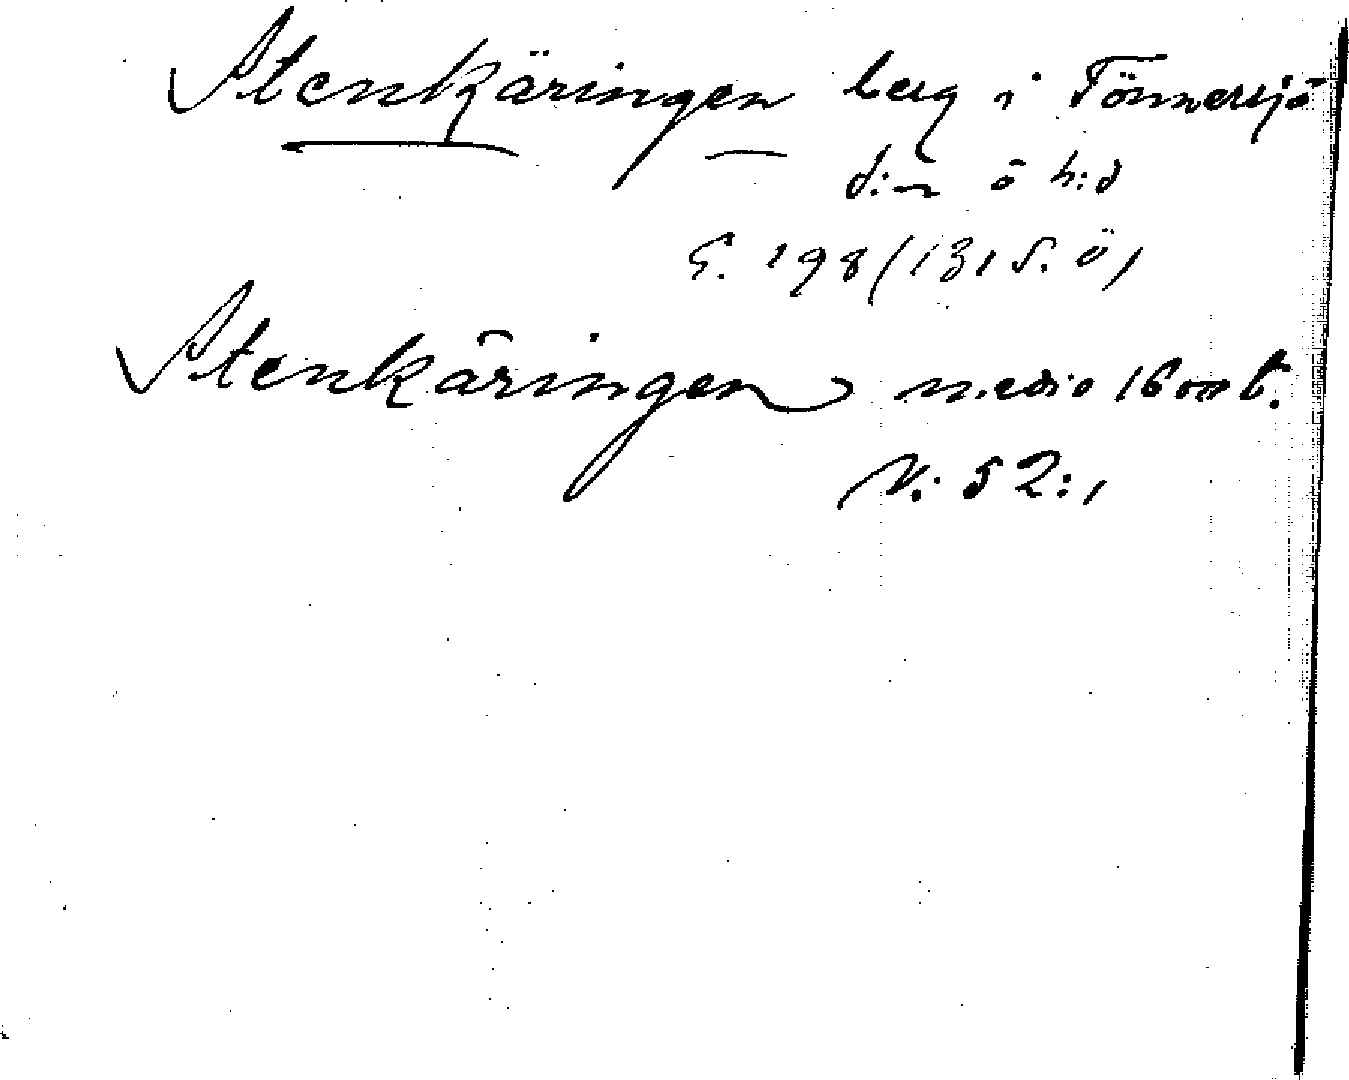 Stenkäringen berg i Tönnersjö
s:n ö h:d
G. 198 (131 S. Ö)
Stenkäringen medio 1600 t.
N: 52:1